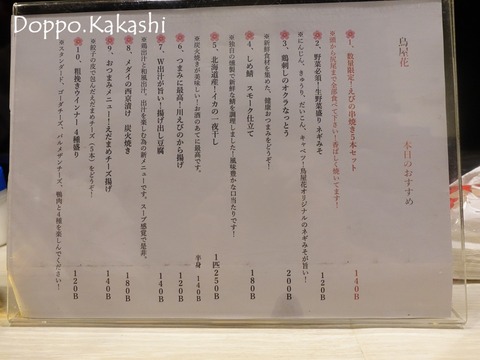 Doppo.Kakashi
鳥屋花
本日のおすすめ
1、数量限定！えびの串焼き5本セット 140B
※頭から尻尾まで全部食べて下さい！香ばしく焼いてます！
2、野菜必須！生野菜盛り ネギみそ 120B
※にんじん、きゅうり、だいこん、キャベツ！鳥屋花オリジナルのネギみそが旨い！
3、鶏刺しのオクラなっとう 200B
※新鮮食材を集めた、健康おつまみをどうぞ！
4、しめ鯖 スモーク仕立て 180B
※独自の燻製で新鮮な鯖を調理しました！風味豊かな口当たりです！
5、北海道産！イカの一夜干し 1匹 250B
半身 140B
※炭火焼きが美味しい！お酒のあてに最高です。
6、つまみに最高！川えびのから揚げ 120B
7、W出汁が旨い！揚げ出し豆腐 140B
※鶏出汁と和風出汁、出汁を楽しむ為の新メニューです。スープ感覚で是非。
8、メダイの西京漬け 炭火焼き 180B
9、おつまみメニュー！えだまめチーズ揚げ 140B
※餃子の皮で包んだえだまめチーズ（5本）をどうぞ！
10、粗挽きウインナー4種盛り 120B
※スタンダード、ゴーダチーズ、パルメザンチーズ、梅肉と4種を楽しんでください！